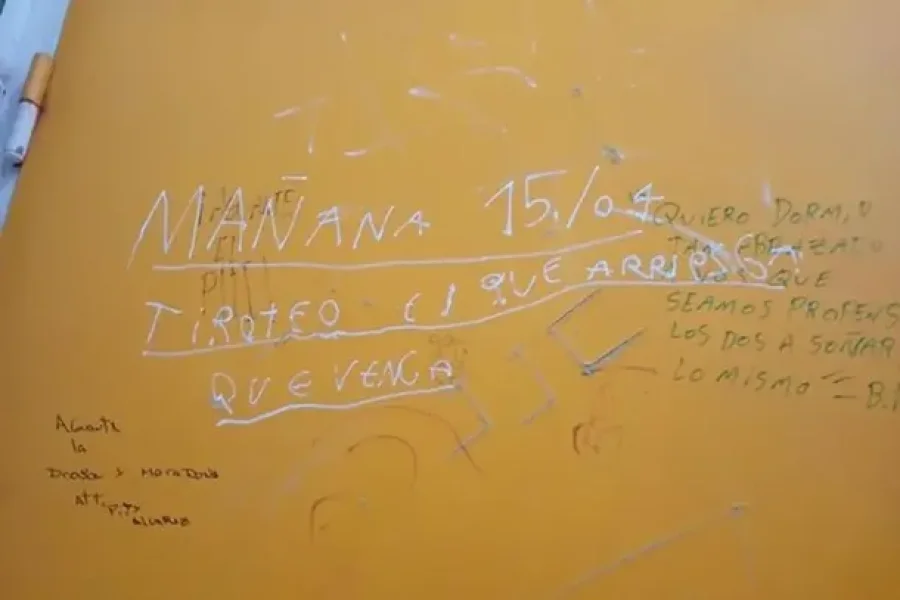 MAÑANA 15/04
TIROTEO el QUE ARRIESGA
QUE VENGA
QUIERO DORMIR
QUE
SEAMOS PROFENS
LOS DOS A SOÑAR
LO MISMO
Aguante
la
Droga y Maradona
Att: Pity
ALVAREZ